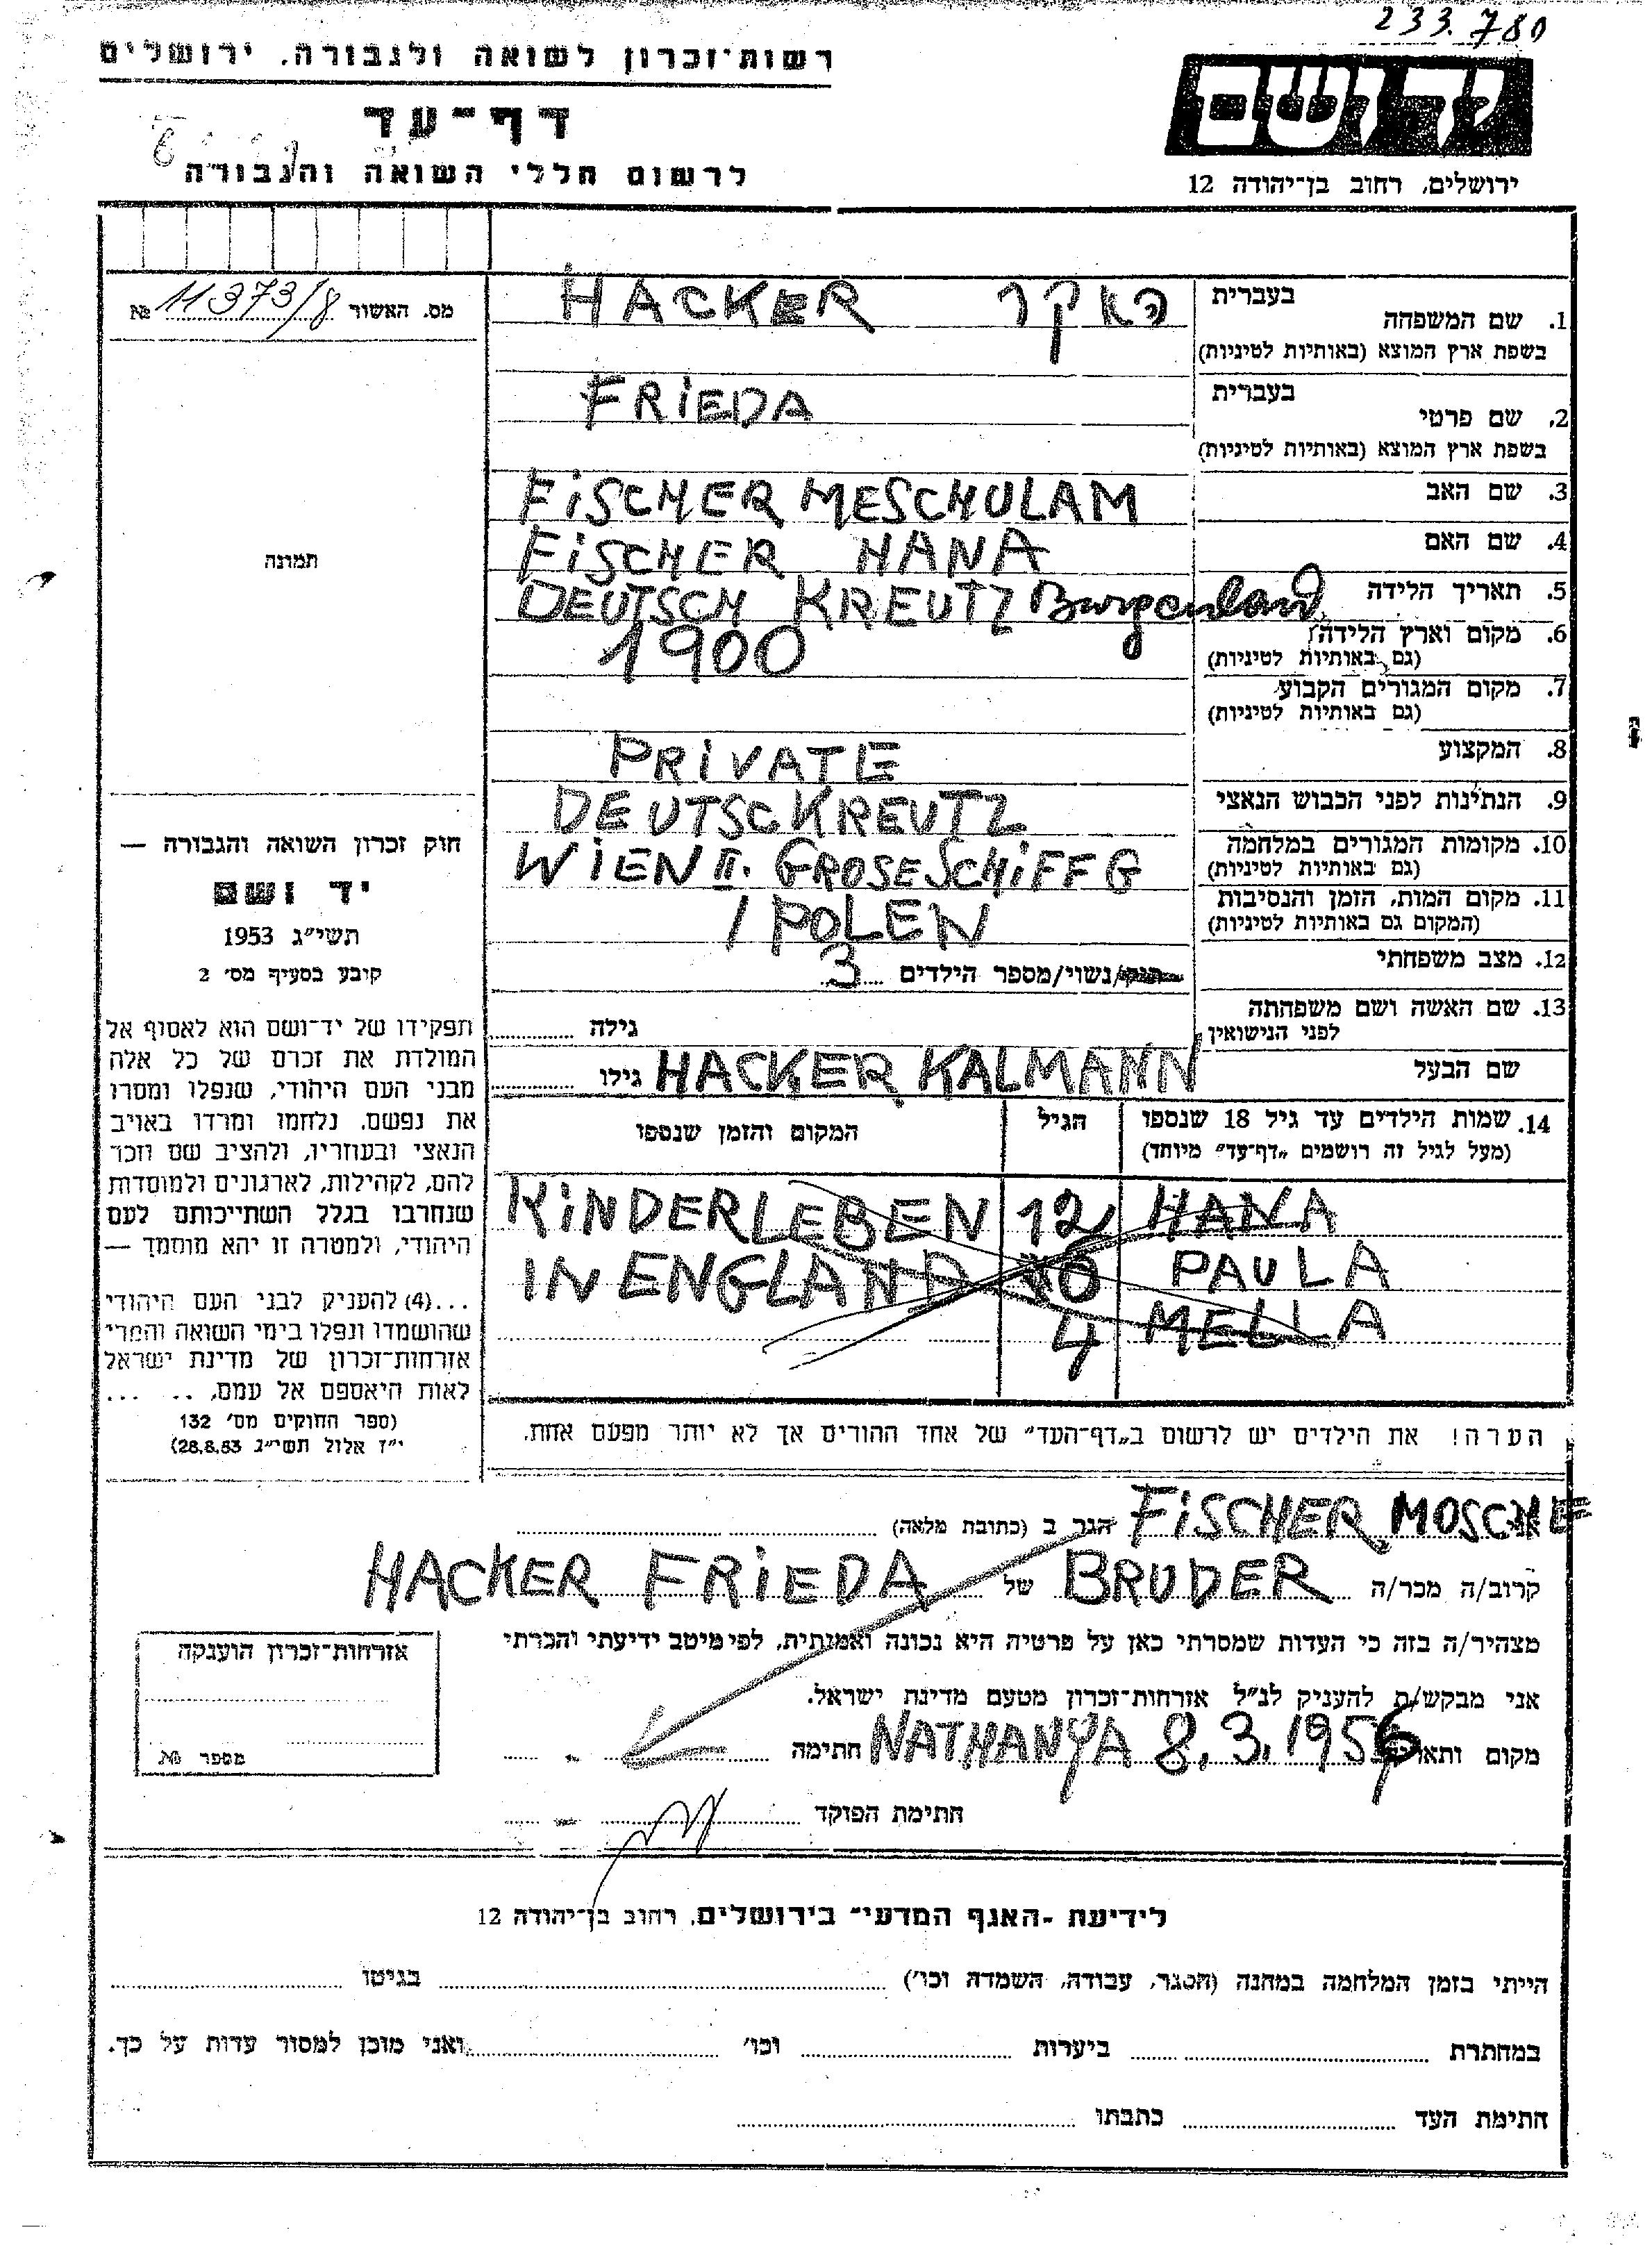 233.780
רשות־זכרון לשואה ולגבורה. ירושלים
דף־עד
לרשום חללי השואה והגבורה
ידושם
ירושלים, רחוב בן־יהודה 12
מס. האשור 11373/8 №
תמונה
חוק זכרון השואה והגבורה —
יד ושם
תשי״ג 1953
קובע בסעיף מס׳ 2
תפקידו של יד־ושם הוא לאסוף אל
המולדת את זכרם של כל אלה
מבני העם היהודי, שנפלו ומסרו
את נפשם. נלחמו ומרדו באויב
הנאצי ובעוזריו, ולהציב שם וזכר
להם, לקהילות, לארגונים ולמוסדות
שנחרבו בגלל השתייכותם לעם
היהודי, ולמטרה זו יהא מוסמך —
...(4) להעניק לבני העם היהודי
שהושמדו ונפלו בימי השואה והמרי
אזרחות־זכרון של מדינת ישראל
לאות היאספם אל עמם, .. ...
(ספר החוקים מס׳ 132
י״ז אלול תשי״ג 28.8.53)
בעברית
1. שם המשפחה האקר HACKER
בשפת ארץ המוצא (באותיות לטיניות)
בעברית
2. שם פרטי FRIEDA
בשפת ארץ המוצא (באותיות לטיניות)
3. שם האב FISCHER MESCHULAM
4. שם האם FISCHER HANA
5. תאריך הלידה DEUTSCH KREUTZ Burgenland
6. מקום וארץ הלידה 1900
(גם באותיות לטיניות)
7. מקום המגורים הקבוע
(גם באותיות לטיניות)
8. המקצוע PRIVATE
9. הנתינות לפני הכבוש הנאצי DEUTSCKREUTZ
10. מקומות המגורים במלחמה WIEN II. GROSESCHIFFG
(גם באותיות לטיניות)
11. מקום המות, הזמן והנסיבות / POLEN
(המקום גם באותיות לטיניות)
12. מצב משפחתי /נשוי/מספר הילדים 3
13. שם האשה ושם משפחתה
לפני הנישואין גילה
שם הבעל HACKER KALMANN גילו
14. שמות הילדים עד גיל 18 שנספו הגיל המקום והזמן שנספו
(מעל לגיל זה רושמים „דף־עד״ מיוחד)
HANA 12 KINDERLEBEN
PAULA 10 IN ENGLAND
MELLA 4
הערה! את הילדים יש לרשום ב„דף־העד״ של אחד ההורים אך לא יותר מפעם אחת.
FISCHER MOSCHE הגר ב (כתובת מלאה)
קרוב/ה מכר/ה BRUDER של HACKER FRIEDA
מצהיר/ה בזה כי העדות שמסרתי כאן על פרטיה היא נכונה ואמתית, לפי מיטב ידיעתי והכרתי
אני מבקש/ת להעניק לנ״ל אזרחות־זכרון מטעם מדינת ישראל.
מקום ותאריך NATHANYA 8.3.1956 חתימה
חתימת הפוקד
אזרחות־זכרון הוענקה
מספר №
לידיעת „האגף המדעי״ בירושלים, רחוב בן־יהודה 12
הייתי בזמן המלחמה במחנה (הסגר, עבודה, השמדה וכו׳) בגיטו
במחתרת ביערות וכו׳ ואני מוכן למסור עדות על כך.
חתימת העד כתבתו